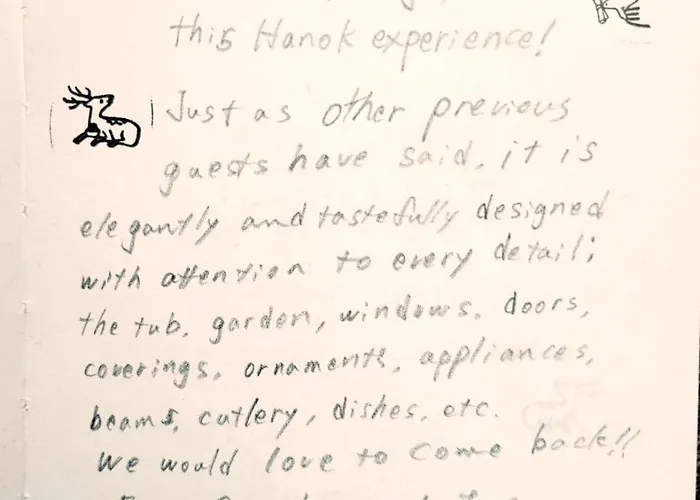 this Hanok experience!
Just as other previous
guests have said, it is
elegantly and tastefully designed
with attention to every detail;
the tub, garden, windows, doors,
coverings, ornaments, appliances,
beams, cutlery, dishes, etc.
We would love to come back!!